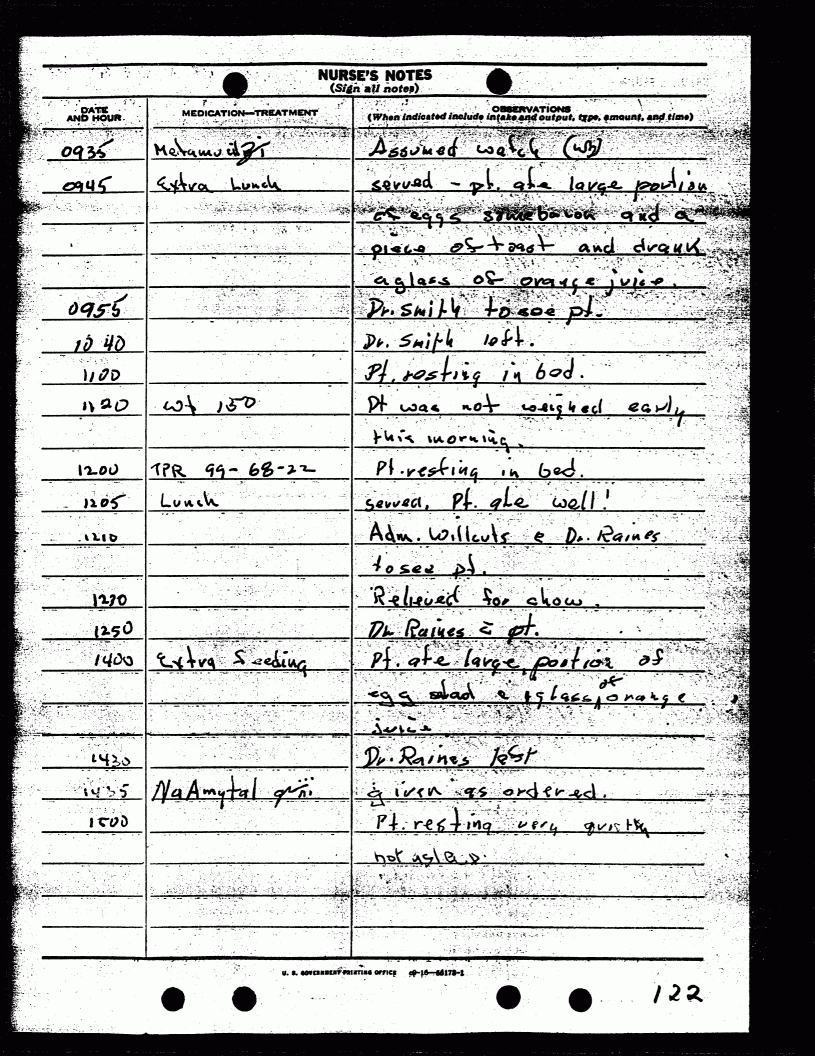 NURSE'S NOTES
(Sign all notes)
DATE AND HOUR MEDICATION—TREATMENT OBSERVATIONS
(When indicated include intake and output, type, amount, and time)
0935 Metamucil ʒi Assumed watch
0945 Extra Lunch served - pt. ate large portion
of eggs some bacon and a
piece of toast and drank
a glass of orange juice.
0955 Dr. Smith to see pt.
1040 Dr. Smith left.
1100 Pt. resting in bed.
1120 wt 150 Pt was not weighed early
this morning.
1200 TPR 99-68-22 Pt. resting in bed.
1205 Lunch served, Pt. ate well!
1210 Adm. Willcuts c Dr. Raines
to see pt.
1230 Relieved for chow.
1250 Dr. Raines c pt.
1400 Extra Feeding Pt. ate large portion of
egg slad c glass of orange
juice.
1430 Dr. Raines left
1435 Na Amytal given as ordered.
1500 Pt. resting very quietly
not asleep.
U. S. GOVERNMENT PRINTING OFFICE
122